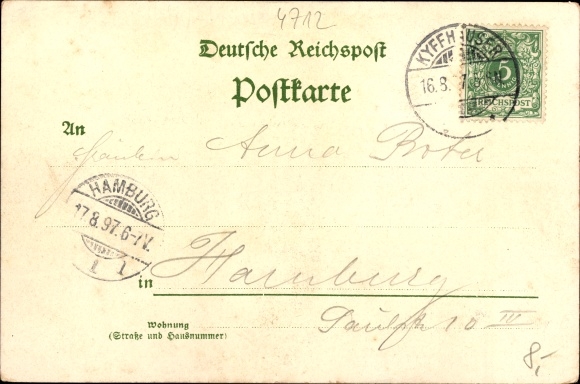 4712
Deutsche Reichspost
Postkarte
KYFFHÄUSER
16.8.
5
REICHSPOST
An
Fräulein Anna
HAMBURG
17.8.97. 6-7V.
1 1
in Hamburg
10 IV
Wohnung
(Straße und Hausnummer)
8,-